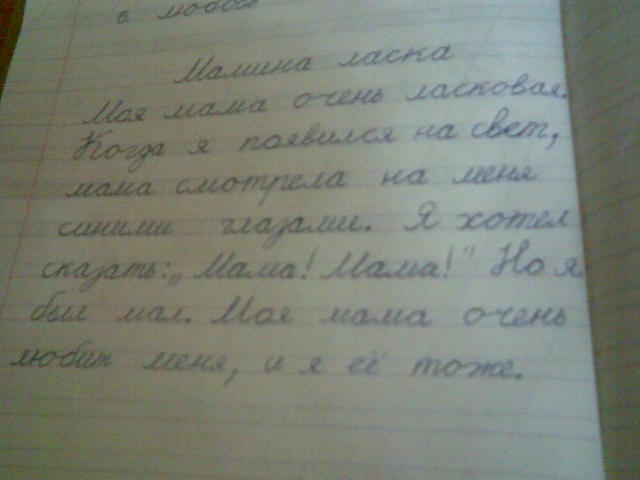 в любовь
Мамина ласка
Моя мама очень ласковая.
Когда я появился на свет,
мама смотрела на меня
синими глазами. Я хотел
сказать: „Мама! Мама!" Но я
был мал. Моя мама очень
любит меня, и я её тоже.